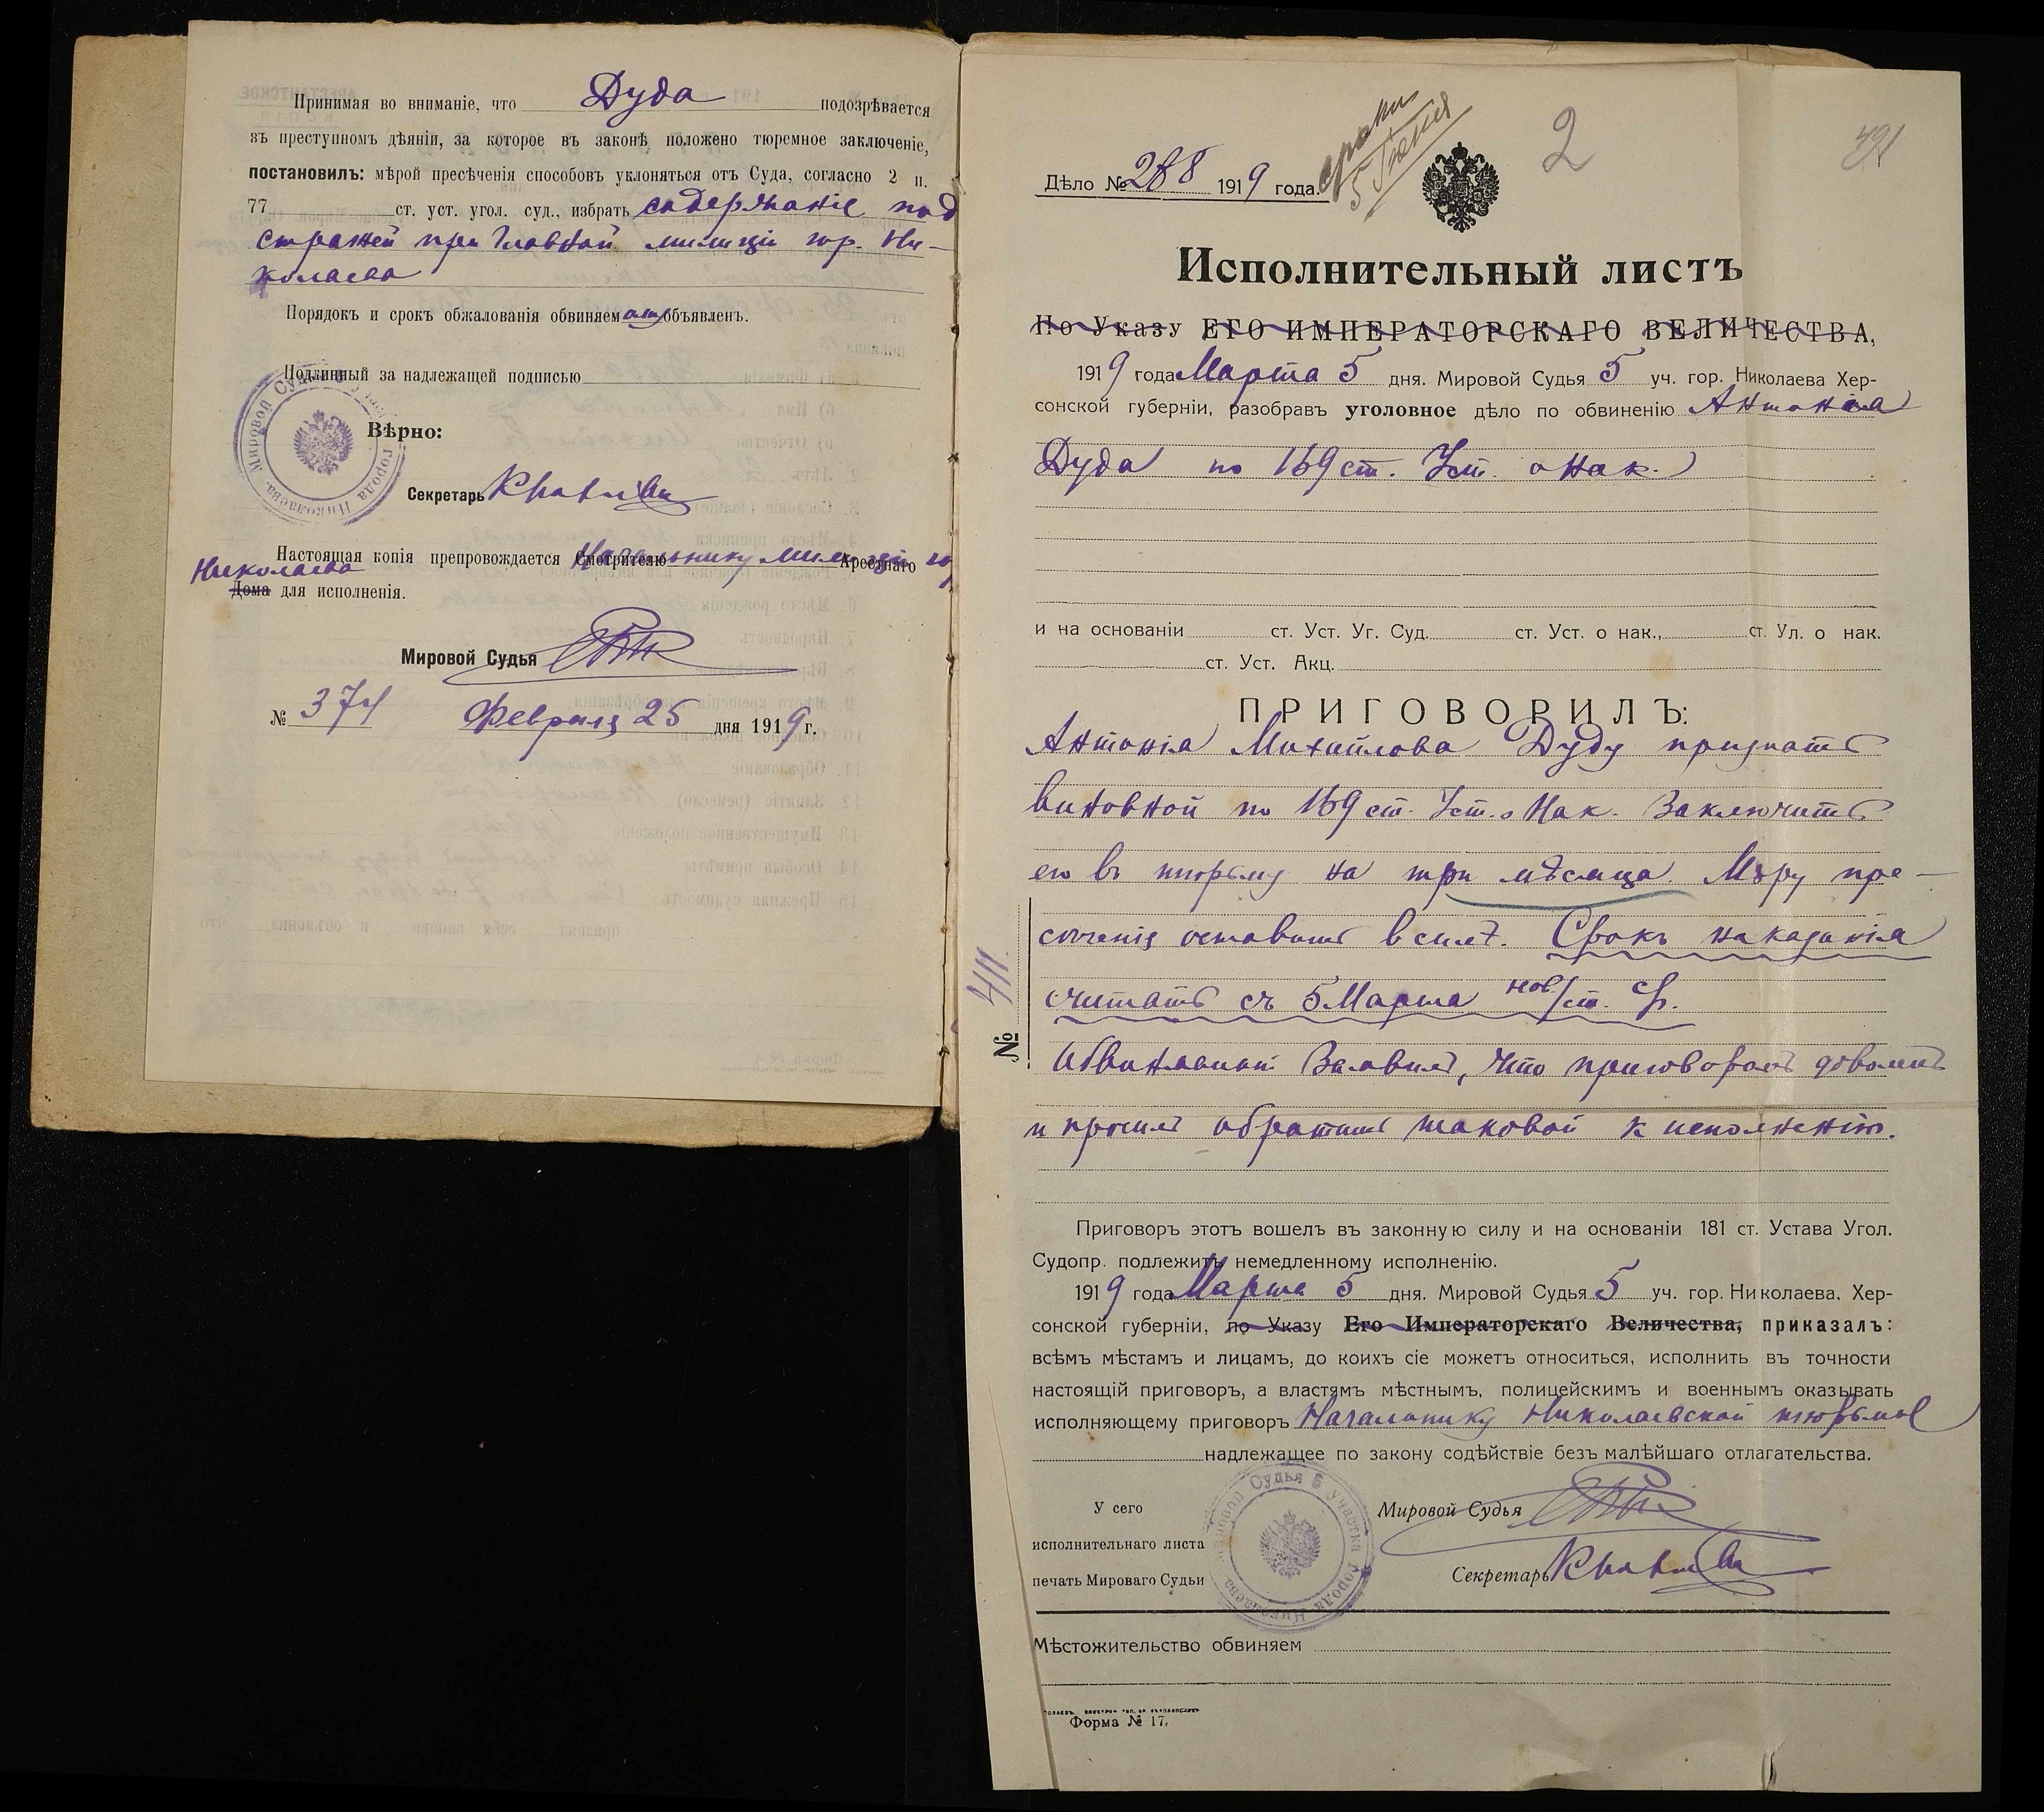 Принимая во вниманіе, что Дуда подозрѣвается
въ преступномъ дѣяніи, за которое въ законѣ положено тюремное заключеніе,
постановилъ: мѣрой пресѣченія способовъ уклоняться отъ Суда, согласно 2 п.
77 ст. уст. угол. суд., избрать содержаніе под
стражей при Главной милиціи гор. Ни-
колаева
Порядокъ и срокъ обжалованія обвиняем объявленъ.
Подлинный за надлежащей подписью
Вѣрно:
Мировой Судья 5 Участка города Николаева
Секретарь
Настоящая копія препровождается Смотрителю Начальнику милиціи Арестнаго го
Николаева
Дома для исполненія.
Мировой Судья
№ 374 Февраля 25 дня 1919 г.
2
391
сроки
5 Іюня
Дѣло № 288 1919 года.
Исполнительный листъ
По Указу ЕГО ИМПЕРАТОРСКАГО ВЕЛИЧЕСТВА,
1919 года Марта 5 дня. Мировой Судья 5 уч. гор. Николаева Хер-
сонской губерніи, разобравъ уголовное дѣло по обвиненію Антонія
Дуда по 169 ст. Уст. о Нак.
и на основаніи ст. Уст. Уг. Суд. ст. Уст. о нак., ст. Ул. о нак.
ст. Уст. Акц.
ПРИГОВОРИЛЪ:
Антонія Михайлова Дуду признать
виновной по 169 ст. Уст. о Нак. Заключить
его в тюрьму на три мѣсяца. Мѣру пре-
сѣченія оставить в силѣ. Срокъ наказанія
считать съ 5 Марта нов/ст. с/г.
Обвиняемый заявилъ, что приговоромъ доволенъ
и просилъ обратить таковой к исполненію.
№ 411.
Приговоръ этотъ вошелъ въ законную силу и на основаніи 181 ст. Устава Угол.
Судопр. подлежитъ немедленному исполненію.
1919 года Марта 5 дня. Мировой Судья 5 уч. гор. Николаева, Хер-
сонской губерніи, по Указу Его Императорскаго Величества, приказалъ:
всѣмъ мѣстамъ и лицамъ, до коихъ сіе можетъ относиться, исполнить въ точности
настоящій приговоръ, а властямъ мѣстнымъ, полицейскимъ и военнымъ оказывать
исполняющему приговоръ Начальнику Николаевской тюрьмы
надлежащее по закону содѣйствіе безъ малѣйшаго отлагательства.
У сего
исполнительнаго листа
печать Мироваго Судьи
Мировой Судья 5 Участка города Николаева
Мировой Судья
Секретарь
Мѣстожительство обвиняем
Форма № 17.